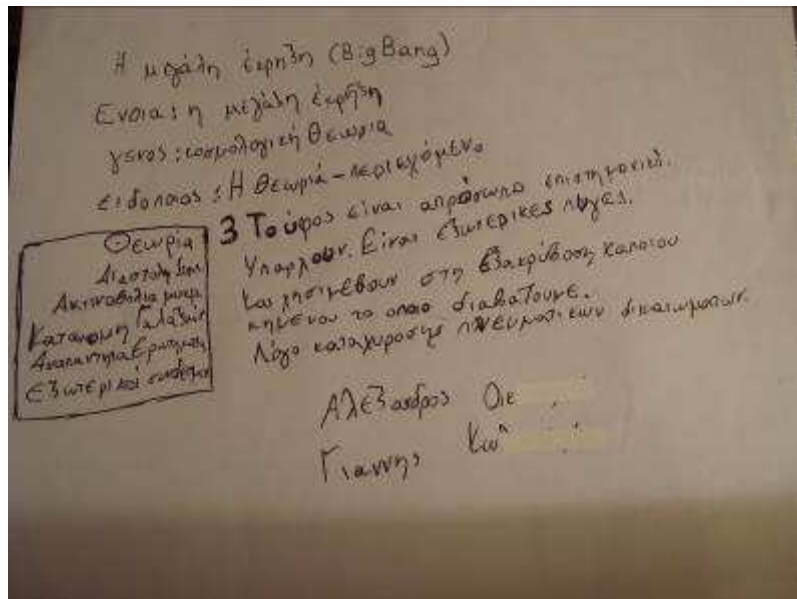 Η μεγάλη έκρηξη (Big Bang)
Ενοια: η μεγάλη έκρηξη
γενος: κοσμολογική Θεωρία
ειδοποιος: Η Θεωρία - περιεχόμενο
Θεωρία
Διαστολή
Ακτινοβολία
Κατανομή Γαλαξιών
Αναπαντητα Ερωτηματα
Εξωτερικοί συνδεσμοι
3 Το ύφος είναι απρόσωπο επιστημονικό.
Υπαρχουν. Είναι εξωτερικες πηγες.
Και χησιμεβουν στη εξακρίβοση καποιου
κημενου το οποιο διαβαζουμε.
Λόγο καταχυροσης πνευματικων δικαιωματων.
Αλέξανδρος Οιε
Γιαννης Κω